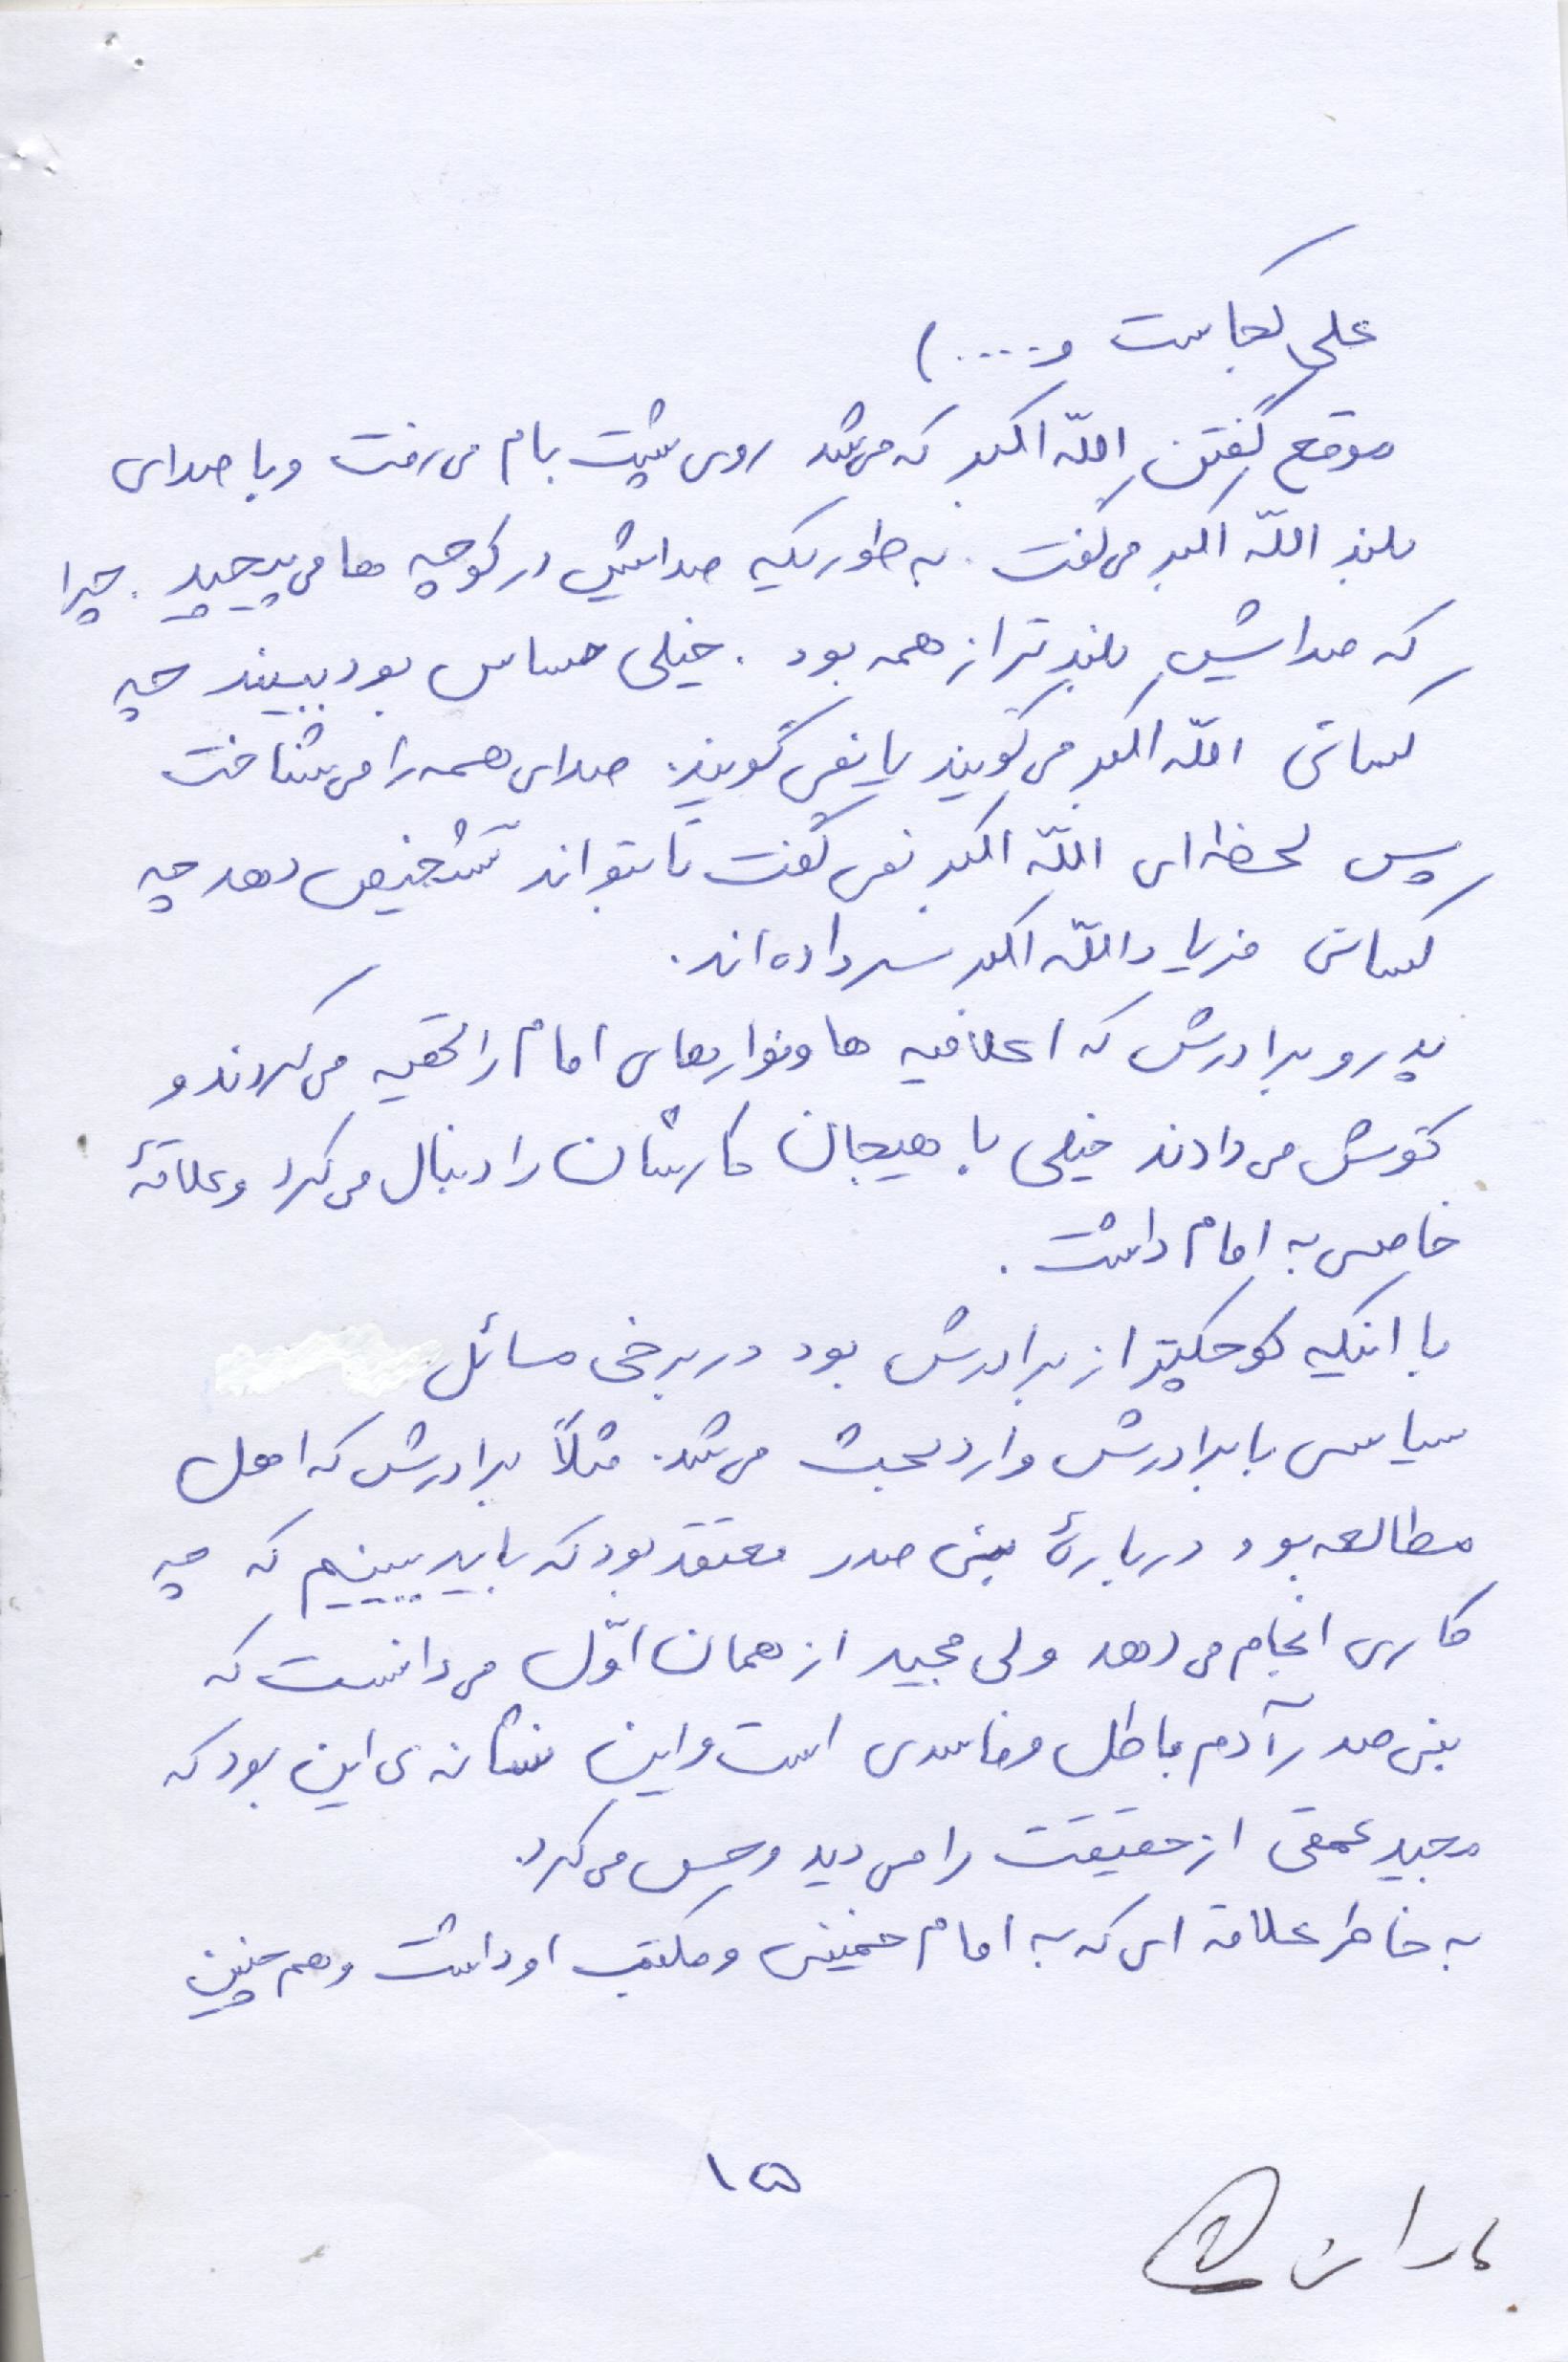 علی کجاست و .....)
موقع گفتن الله اکبر که می‌شد روی پشت بام می‌رفت و با صدای
بلند الله اکبر می‌گفت. به طوریکه صدایش در کوچه ها می‌پیچید. چرا
که صدایش بلندتر از همه بود. خیلی حساس بود ببیند چه
کسانی الله اکبر می‌گویند یا نمی‌گویند. صدای همه را می‌شناخت
پس لحظه‌ای الله اکبر نمی‌گفت تا بتواند تشخیص دهد چه
کسانی فریاد الله اکبر سر داده‌اند.
پدر و برادرش که اعلامیه ها و نوارهای امام را تهیه می‌کردند و
گوش می‌دادند خیلی با هیجان کارشان را دنبال می‌کرد و علاقهٔ
خاصی به امام داشت.
با اینکه کوچکتر از برادرش بود در برخی مسائل
سیاسی با برادرش وارد بحث می‌شد. مثلاً برادرش که اهل
مطالعه بود دربارهٔ بنی صدر معتقد بود که باید ببینیم که چه
کاری انجام می‌دهد ولی مجید از همان اوّل می‌دانست که
بنی صدر آدم باطل و فاسدی است و این نشانه‌ی این بود که
مجید عمقی از حقیقت را می‌دید و حس می‌کرد.
به خاطر علاقه ای که به امام خمینی و مکتب او داشت و هم چنین
۱۵